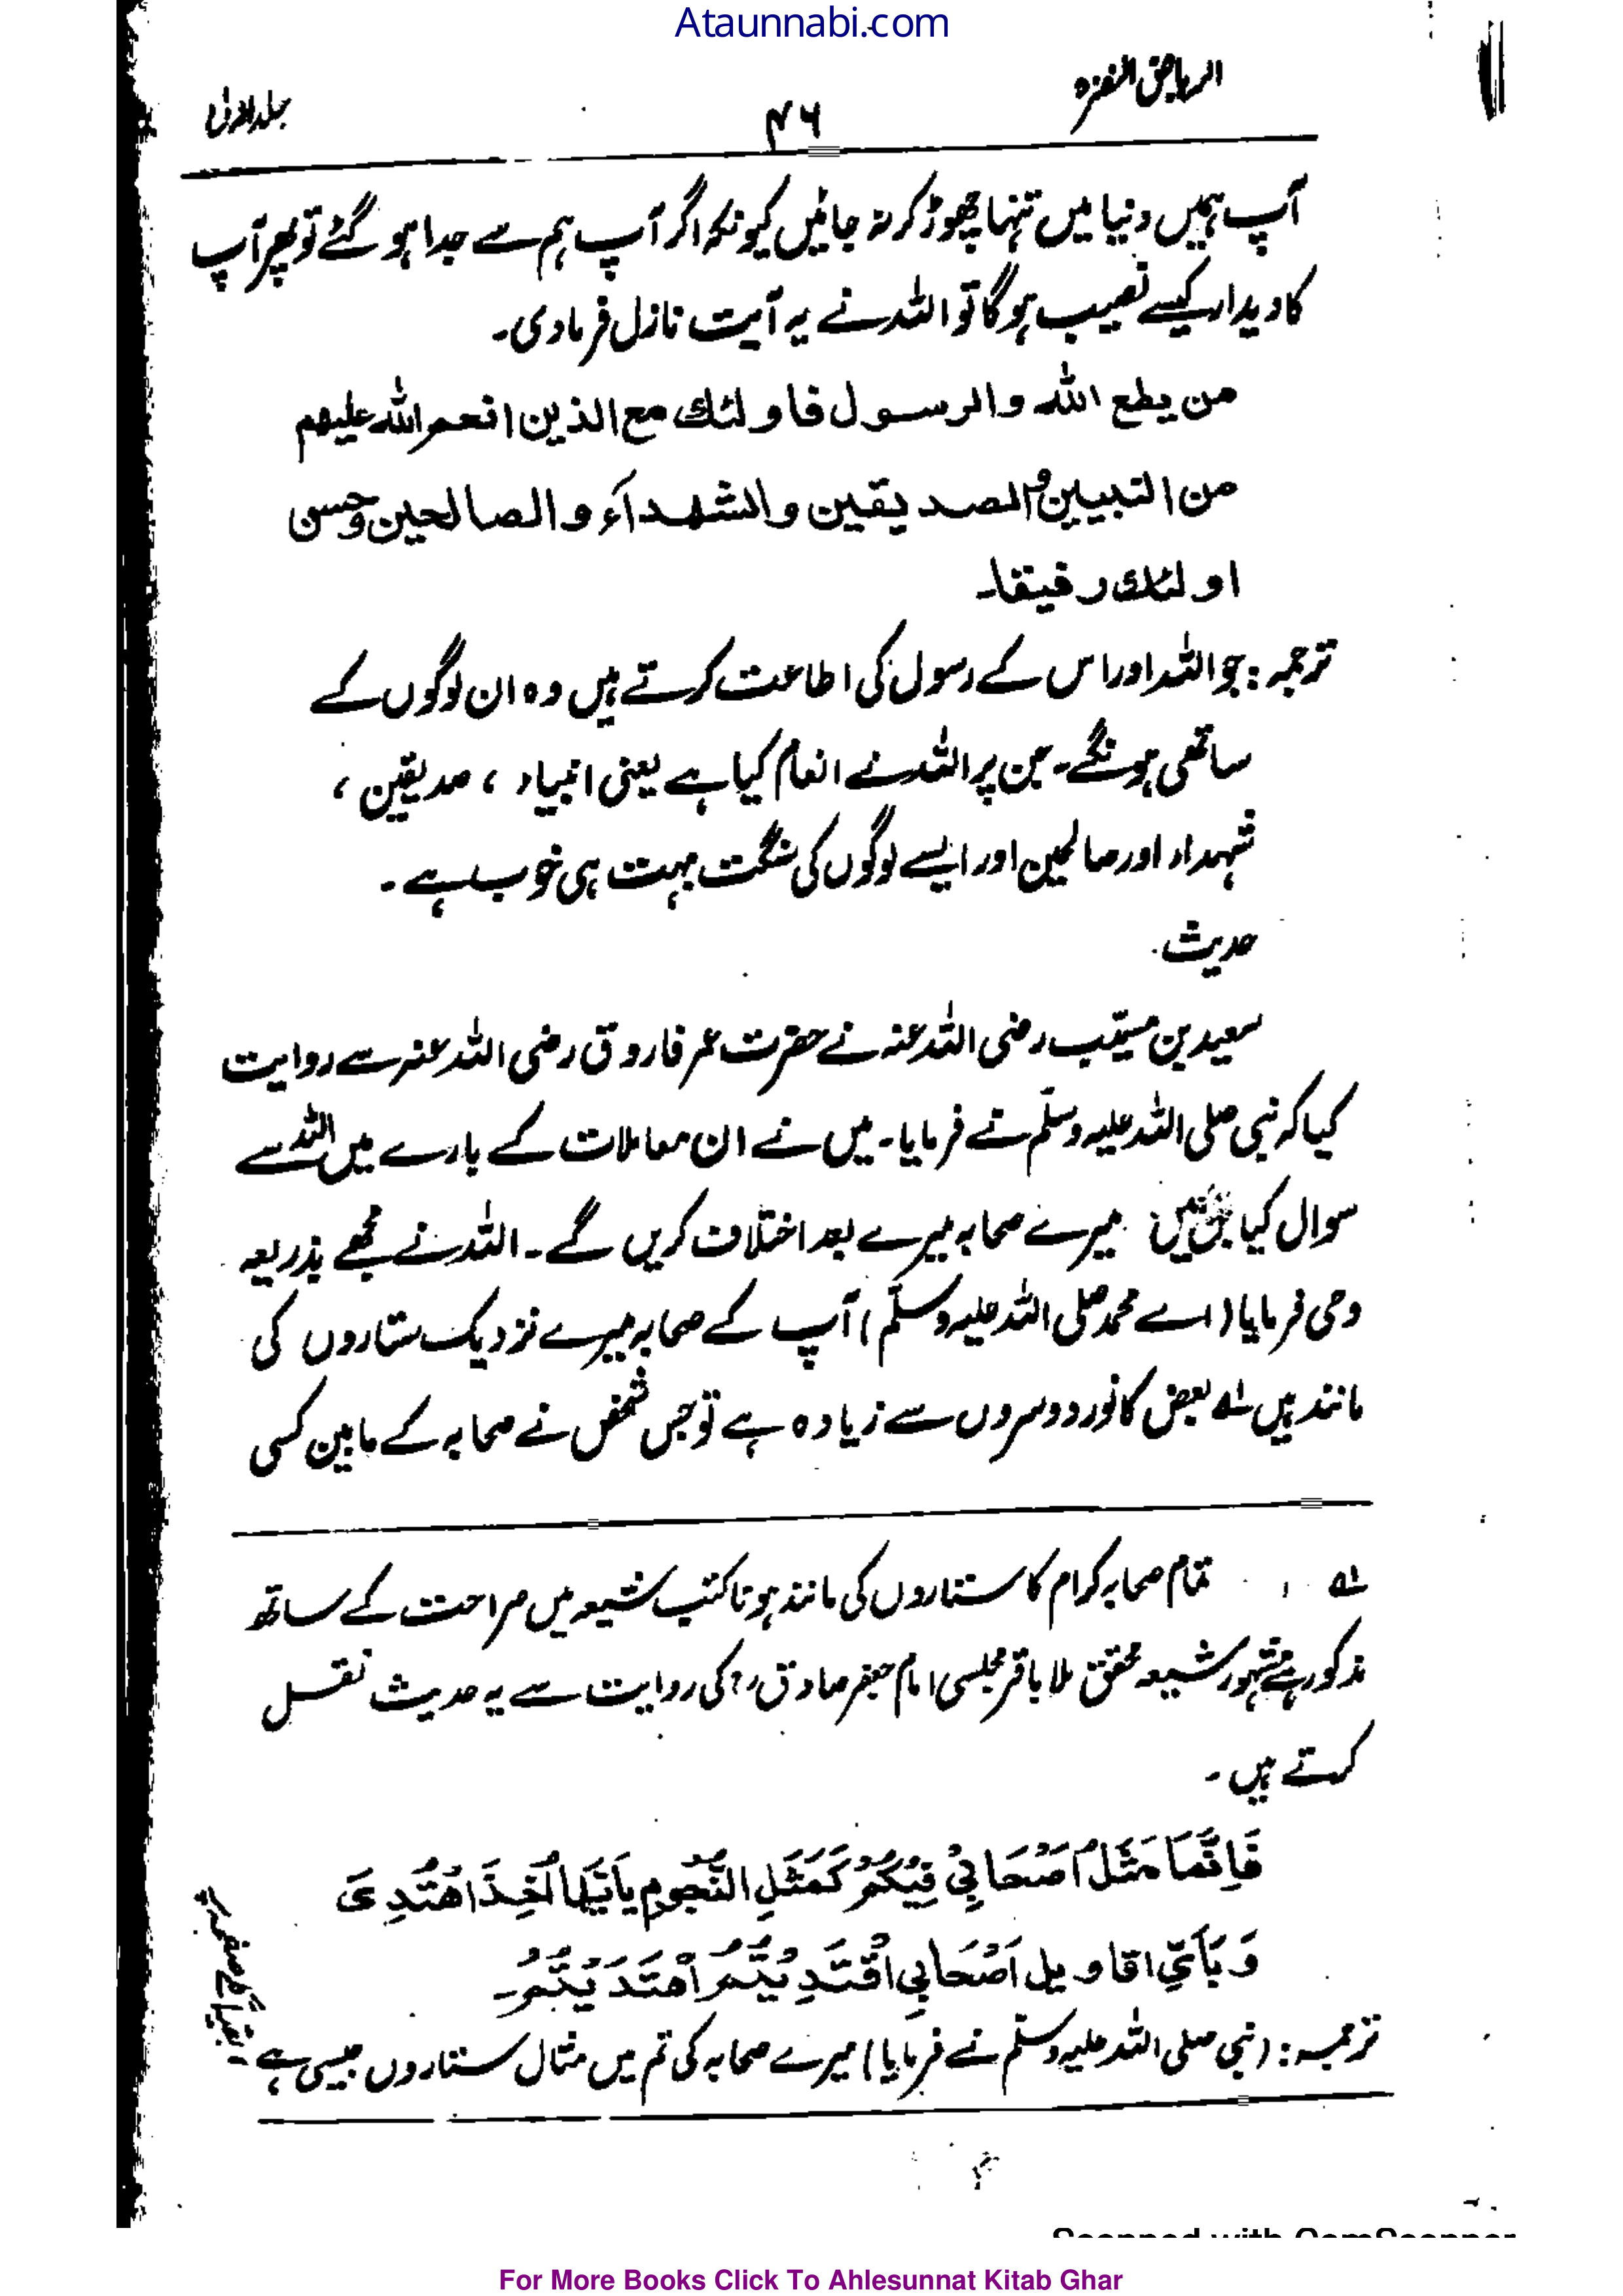 Ataunnabi.com
الریاض النضرہ
۴۶
جلد اول
آپ ہمیں دنیا میں تنہا چھوڑ کر نہ جائیں کیونکہ اگر آپ ہم سے جدا ہو گئے تو پھر آپ
کا دیدار کیسے نصیب ہو گا تو اللہ نے یہ آیت نازل فرما دی۔
من یطع اللہ والرسول فاولئک مع الذین انعم اللہ علیھم
من النبیین والصدیقین والشھدآء والصالحین وحسن
اولئک رفیقا۔
ترجمہ: جو اللہ اور اس کے رسول کی اطاعت کرتے ہیں وہ ان لوگوں کے
ساتھی ہونگے۔ جن پر اللہ نے انعام کیا ہے یعنی انبیاء ، صدیقین ،
شہداء اور صالحین اور ایسے لوگوں کی سنگت بہت ہی خوب ہے۔
حدیث
سعید بن مسیّب رضی اللہ عنہ نے حضرت عمر فاروق رضی اللہ عنہ سے روایت
کیا کہ نبی صلی اللہ علیہ وسلّم نے فرمایا۔ میں نے ان معاملات کے بارے میں اللہ سے
سوال کیا جن میں میرے صحابہ میرے بعد اختلاف کریں گے۔ اللہ نے مجھے بذریعہ
وحی فرمایا (اے محمد صلی اللہ علیہ وسلّم) آپ کے صحابہ میرے نزدیک ستاروں کی
مانند ہیں لہ بعض کا نور دوسروں سے زیادہ ہے تو جس شخص نے صحابہ کے مابین کسی
لہ تمام صحابہ کرام کا ستاروں کی مانند ہونا کتب شیعہ میں صراحت کے ساتھ
مذکور ہے مشہور شیعہ محقق ملا باقر مجلسی امام جعفر صادق رض کی روایت سے یہ حدیث نقل
کرتے ہیں۔
فَاِنَّمَا مَثَلُ اَصْحَابِیْ فِیْکُمْ کَمَثَلِ النُّجُوْمِ بِاَیِّہَا اُخِذَ اھْتُدِیَ
وَ بِاَیِّ اقاویل اَصْحَابِی اقْتَدَیْتُمْ اھْتَدَیْتُمْ۔
ترجمہ: (نبی صلی اللہ علیہ وسلّم نے فرمایا) میرے صحابہ کی تم میں مثال ستاروں جیسی ہے
(بقیہ اگلے صفحہ پر)
For More Books Click To Ahlesunnat Kitab Ghar